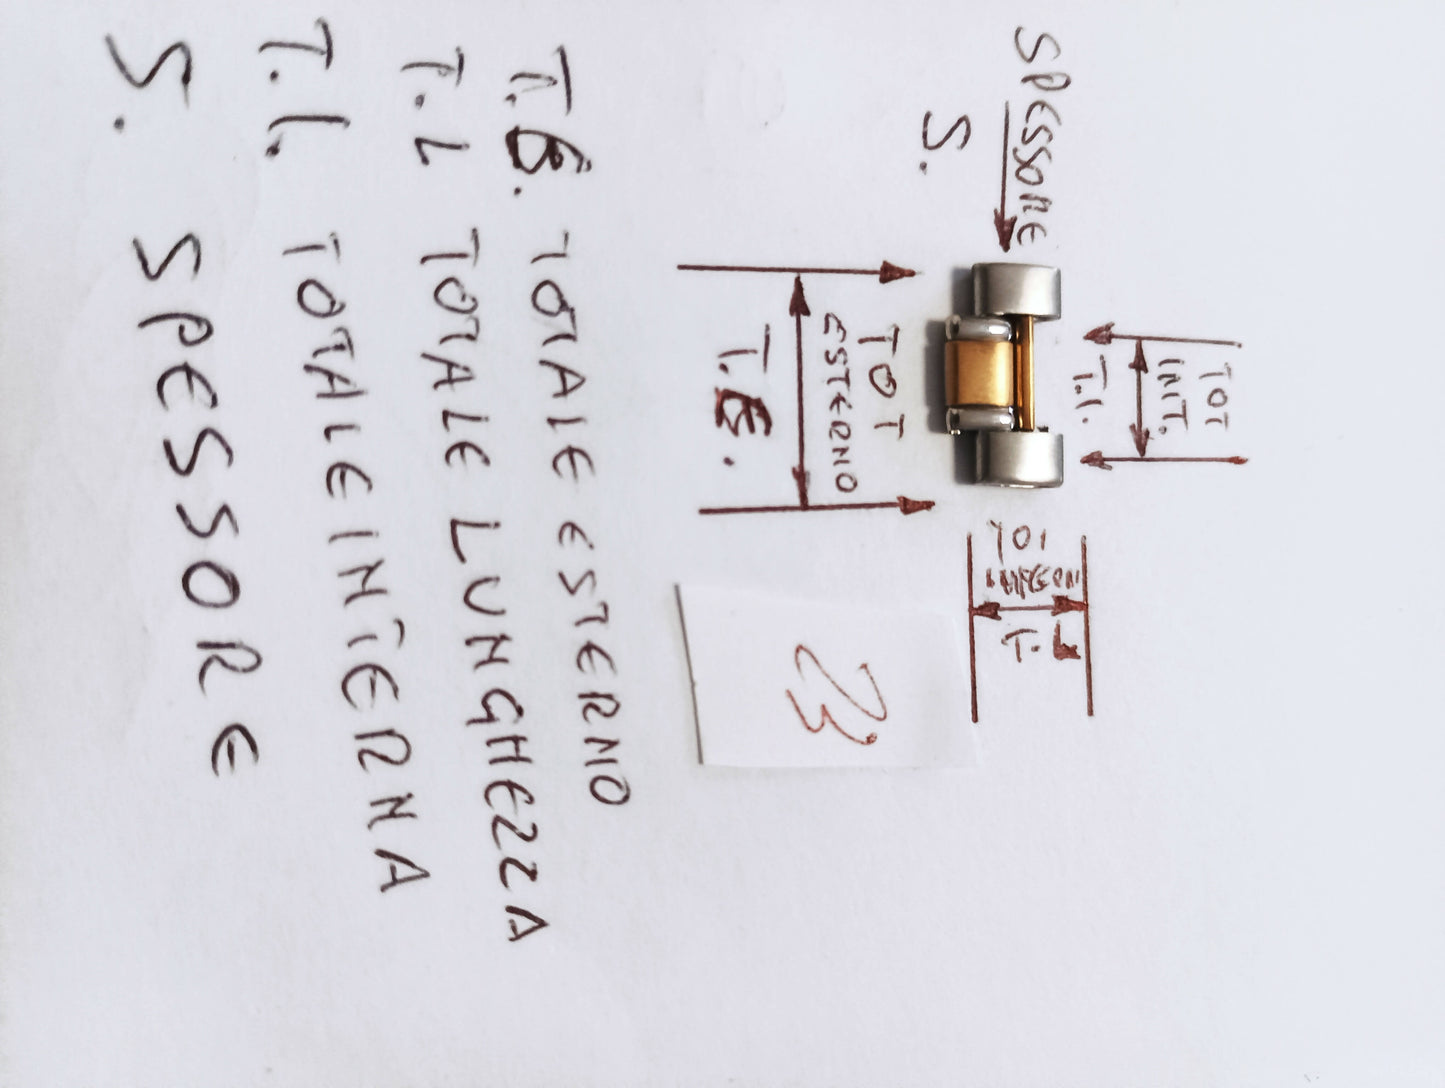 TOT
INT.
T.I.
SPESSORE
S.
TOT
ESTERNO
T.E.
23
T.E. TOTALE ESTERNO
T.L TOTALE LUNGHEZZA
T.I. TOTALE INTERNA
S. SPESSORE